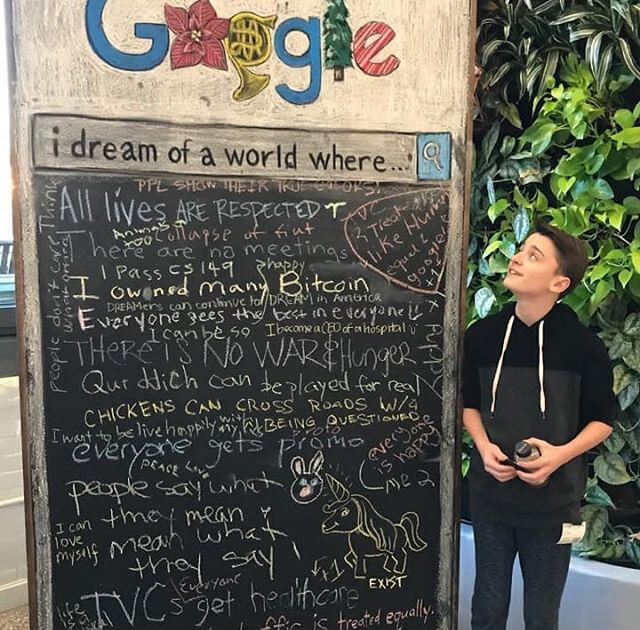 Google
i dream of a world where...
PPL SHOW THEIR TRUE COLORS!
All lives ARE RESPECTED
Animals too
Collapse of
There are no meetings
I pass CS 149
happy
I owned many Bitcoin
DREAMers can continue to DREAM in America
Everyone sees the best in everyone!!
I can be so
I become a CEO of a hospital
THERE IS NO WAR & Hunger
Qudditch can be played for real
CHICKENS CAN CROSS ROADS W/O
BEING QUESTIONED
I want to be live happily with my
everyone gets promo
everyone is happy
PEACE LOVE
me 2
people say what
they mean &
mean what
they say
I can
love
myself
+1
EXIST
Everyone
TVCs get healthcare
is treated equally.
People don't care
Think
like Human
equal 2
google